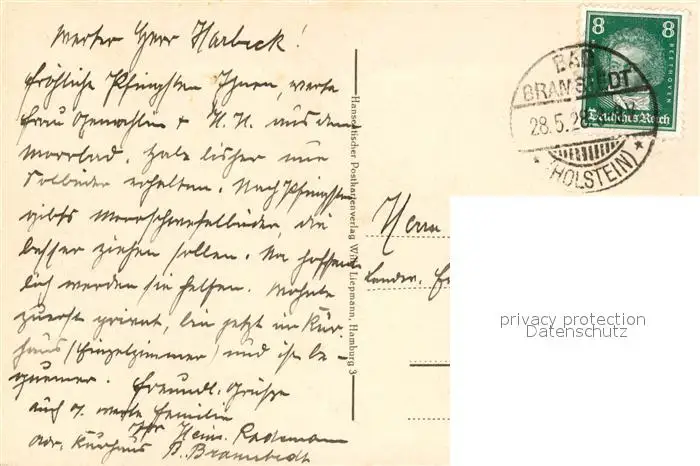 Werter Herr Harbeck!
fröhliche Pfingsten Ihnen, werte
Frau Gemahlin + N.N. aus dem
Moorbad. Habe bisher nur
Solbäder erhalten. Nach Pfingsten
gibts Moorschwefelbäder, die
besser ziehen sollen. Na hoffent-
lich werden sie helfen. Wohnte
zuerst privat, bin jetzt im Kur-
haus (Einzelzimmer) und ist be-
quemer. Freundl. Grüße
auch a. werte Familie
Ihr Heinr. Rademann
Adr. Kurhaus B. Bramstedt
Hanseatischer Postkartenverlag Willy Liepmann, Hamburg 3
8 8
BEETHOVEN
Deutsches Reich
BAD
BRAMSTEDT
28.5.28
(HOLSTEIN)
Herrn
privacy protection
Datenschutz